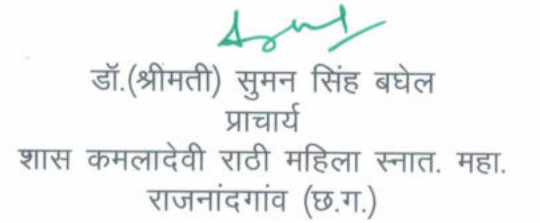 डॉ.(श्रीमती) सुमन सिंह बघेल
प्राचार्य
शास कमलादेवी राठी महिला स्नात. महा.
राजनांदगांव (छ.ग.)